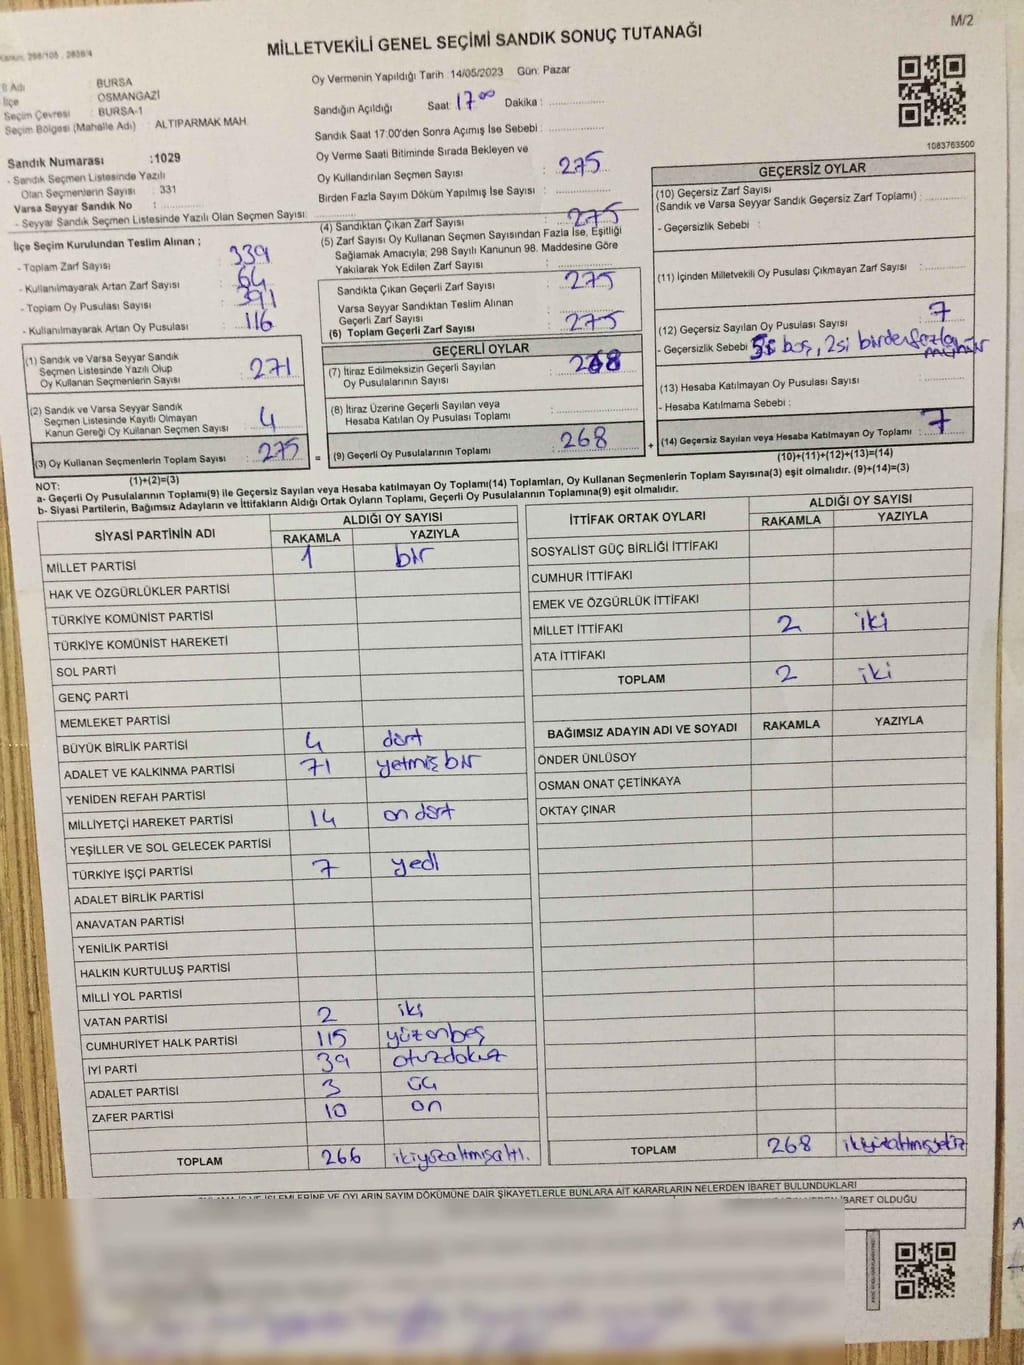 M/2
Kanun: 298/105 , 2839/4
MİLLETVEKİLİ GENEL SEÇİMİ SANDIK SONUÇ TUTANAĞI
İl Adı : BURSA
İlçe : OSMANGAZİ
Seçim Çevresi : BURSA-1
Seçim Bölgesi (Mahalle Adı) : ALTIPARMAK MAH.
Oy Vermenin Yapıldığı Tarih :14/05/2023 Gün: Pazar
Sandığın Açıldığı Saat: 17 00 Dakika :
Sandık Saat 17:00'den Sonra Açımış İse Sebebi :
Oy Verme Saati Bitiminde Sırada Bekleyen ve
Oy Kullandırılan Seçmen Sayısı : 275
Birden Fazla Sayım Döküm Yapılmış İse Sayısı :
Sandık Numarası :1029
- Sandık Seçmen Listesinde Yazılı
Olan Seçmenlerin Sayısı : 331
Varsa Seyyar Sandık No :
- Seyyar Sandık Seçmen Listesinde Yazılı Olan Seçmen Sayısı:
İlçe Seçim Kurulundan Teslim Alınan ;
- Toplam Zarf Sayısı : 339
- Kullanılmayarak Artan Zarf Sayısı : 64
- Toplam Oy Pusulası Sayısı : 391
- Kullanılmayarak Artan Oy Pusulası : 116
(1) Sandık ve Varsa Seyyar Sandık
Seçmen Listesinde Yazılı Olup
Oy Kullanan Seçmenlerin Sayısı : 271
(2) Sandık ve Varsa Seyyar Sandık
Seçmen Listesinde Kayıtlı Olmayan
Kanun Gereği Oy Kullanan Seçmen Sayısı : 4
(3) Oy Kullanan Seçmenlerin Toplam Sayısı : 275
(1)+(2)=(3)
(4) Sandıktan Çıkan Zarf Sayısı : 275
(5) Zarf Sayısı Oy Kullanan Seçmen Sayısından Fazla İse, Eşitliği
Sağlamak Amacıyla; 298 Sayılı Kanunun 98. Maddesine Göre
Yakılarak Yok Edilen Zarf Sayısı :
Sandıkta Çıkan Geçerli Zarf Sayısı : 275
Varsa Seyyar Sandıktan Teslim Alınan
Geçerli Zarf Sayısı :
(6) Toplam Geçerli Zarf Sayısı : 275
GEÇERLİ OYLAR
(7) İtiraz Edilmeksizin Geçerli Sayılan
Oy Pusulalarının Sayısı : 268
(8) İtiraz Üzerine Geçerli Sayılan veya
Hesaba Katılan Oy Pusulası Toplamı :
= (9) Geçerli Oy Pusulalarının Toplamı : 268 +
1083763500
GEÇERSİZ OYLAR
(10) Geçersiz Zarf Sayısı
(Sandık ve Varsa Seyyar Sandık Geçersiz Zarf Toplamı) :
- Geçersizlik Sebebi :
(11) İçinden Milletvekili Oy Pusulası Çıkmayan Zarf Sayısı :
(12) Geçersiz Sayılan Oy Pusulası Sayısı : 7
- Geçersizlik Sebebi : 5i boş, 2si birden fazla
mühür
(13) Hesaba Katılmayan Oy Pusulası Sayısı :
- Hesaba Katılmama Sebebi :
(14) Geçersiz Sayılan veya Hesaba Katılmayan Oy Toplamı : 7
(10)+(11)+(12)+(13)=(14)
NOT:
a- Geçerli Oy Pusulalarının Toplamı(9) ile Geçersiz Sayılan veya Hesaba katılmayan Oy Toplamı(14) Toplamları, Oy Kullanan Seçmenlerin Toplam Sayısına(3) eşit olmalıdır. (9)+(14)=(3)
b- Siyasi Partilerin, Bağımsız Adayların ve İttifakların Aldığı Ortak Oyların Toplamı, Geçerli Oy Pusulalarının Toplamına(9) eşit olmalıdır.
SİYASİ PARTİNİN ADI ALDIĞI OY SAYISI
RAKAMLA YAZIYLA
MİLLET PARTİSİ 1 bir
HAK VE ÖZGÜRLÜKLER PARTİSİ
TÜRKİYE KOMÜNİST PARTİSİ
TÜRKİYE KOMÜNİST HAREKETİ
SOL PARTİ
GENÇ PARTİ
MEMLEKET PARTİSİ
BÜYÜK BİRLİK PARTİSİ 4 dört
ADALET VE KALKINMA PARTİSİ 71 yetmiş bir
YENİDEN REFAH PARTİSİ
MİLLİYETÇİ HAREKET PARTİSİ 14 on dört
YEŞİLLER VE SOL GELECEK PARTİSİ
TÜRKİYE İŞÇİ PARTİSİ 7 yedi
ADALET BİRLİK PARTİSİ
ANAVATAN PARTİSİ
YENİLİK PARTİSİ
HALKIN KURTULUŞ PARTİSİ
MİLLİ YOL PARTİSİ
VATAN PARTİSİ 2 iki
CUMHURİYET HALK PARTİSİ 115 yüzonbeş
İYİ PARTİ 39 otuzdokuz
ADALET PARTİSİ 3 üç
ZAFER PARTİSİ 10 on
TOPLAM 266 ikiyüzaltmışaltı.
İTTİFAK ORTAK OYLARI ALDIĞI OY SAYISI
RAKAMLA YAZIYLA
SOSYALİST GÜÇ BİRLİĞİ İTTİFAKI
CUMHUR İTTİFAKI
EMEK VE ÖZGÜRLÜK İTTİFAKI
MİLLET İTTİFAKI 2 iki
ATA İTTİFAKI
TOPLAM 2 iki
BAĞIMSIZ ADAYIN ADI VE SOYADI RAKAMLA YAZIYLA
ÖNDER ÜNLÜSOY
OSMAN ONAT ÇETİNKAYA
OKTAY ÇINAR
TOPLAM 268 ikiyüzaltmışsekiz
İŞLEMLERİNE VE OYLARIN SAYIM DÖKÜMÜNE DAİR ŞİKAYETLERLE BUNLARA AİT KARARLARIN NELERDEN İBARET BULUNDUKLARI
İBARET OLDUĞU